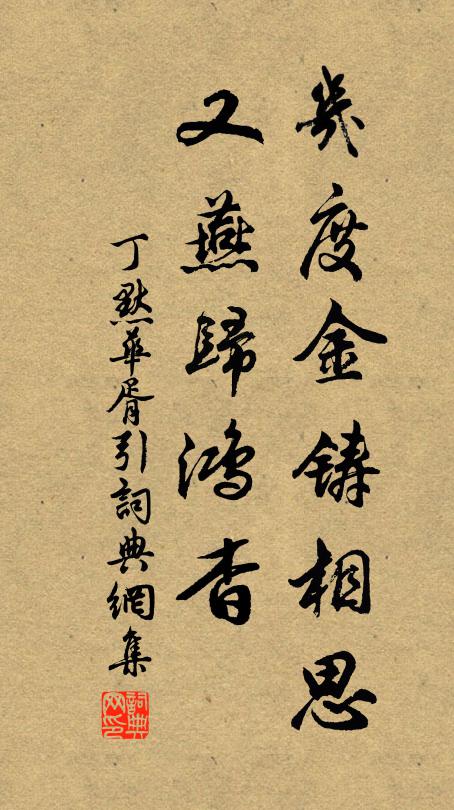 幾度金鑄相思
又燕歸鴻杳
丁默華胥引詞典網集
詞典网印